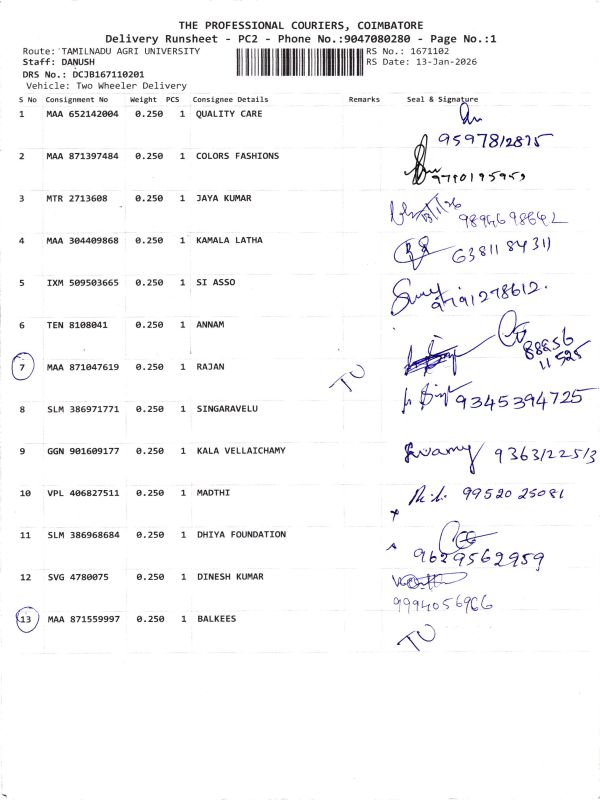 THE PROFESSIONAL COURIERS, COIMBATORE
Delivery Runsheet - PC2 - Phone No.:9047080280 - Page No.:1
Route: TAMILNADU AGRI UNIVERSITY RS No.: 1671102
Staff: DANUSH RS Date: 13-Jan-2026
DRS No.: DCJB167110201
Vehicle: Two Wheeler Delivery
S No Consignment No Weight PCS Consignee Details Remarks Seal & Signature
1 MAA 652142004 0.250 1 QUALITY CARE
9597812875
2 MAA 871397484 0.250 1 COLORS FASHIONS
9790195959
3 MTR 2713608 0.250 1 JAYA KUMAR 13/1/26
9894698642
4 MAA 304409868 0.250 1 KAMALA LATHA 6381184311
5 IXM 509503665 0.250 1 SI ASSO
9791278612.
6 TEN 8108041 0.250 1 ANNAM 88256
11525
7 MAA 871047619 0.250 1 RAJAN TU
8 SLM 386971771 0.250 1 SINGARAVELU 9345394725
9 GGN 901609177 0.250 1 KALA VELLAICHAMY Swamy 9363122513
10 VPL 406827511 0.250 1 MADTHI 99520 25081
11 SLM 386968684 0.250 1 DHIYA FOUNDATION
9629562959
12 SVG 4780075 0.250 1 DINESH KUMAR
9994056966
13 MAA 871559997 0.250 1 BALKEES TU